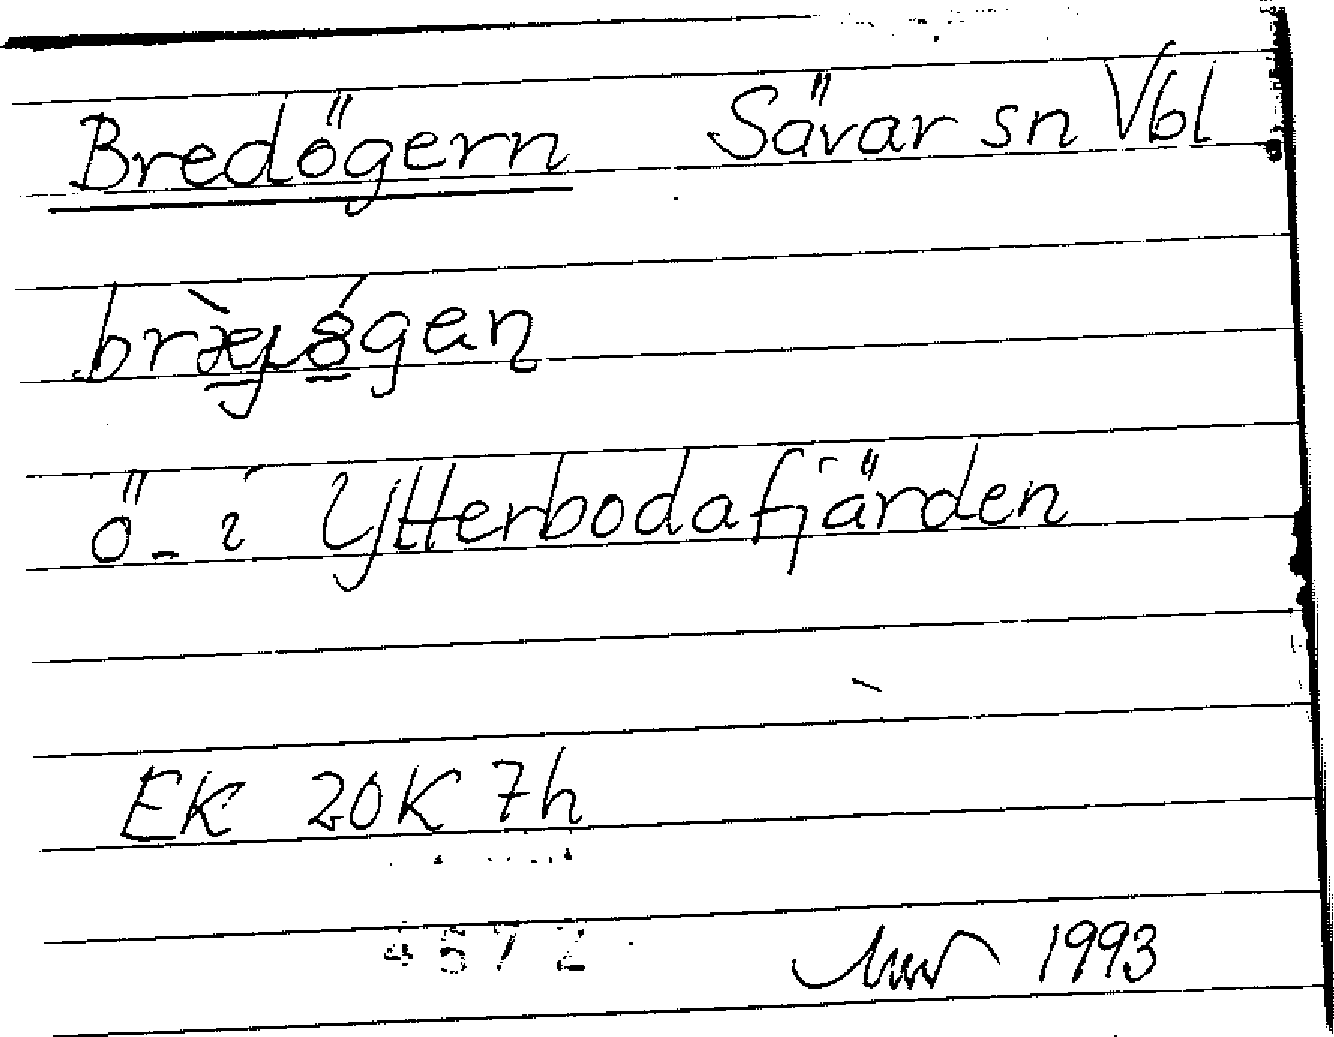 Bredögern Sävar sn Vbl
ö i Ytterbodafjärden
EK 20K 7h
4572 1993